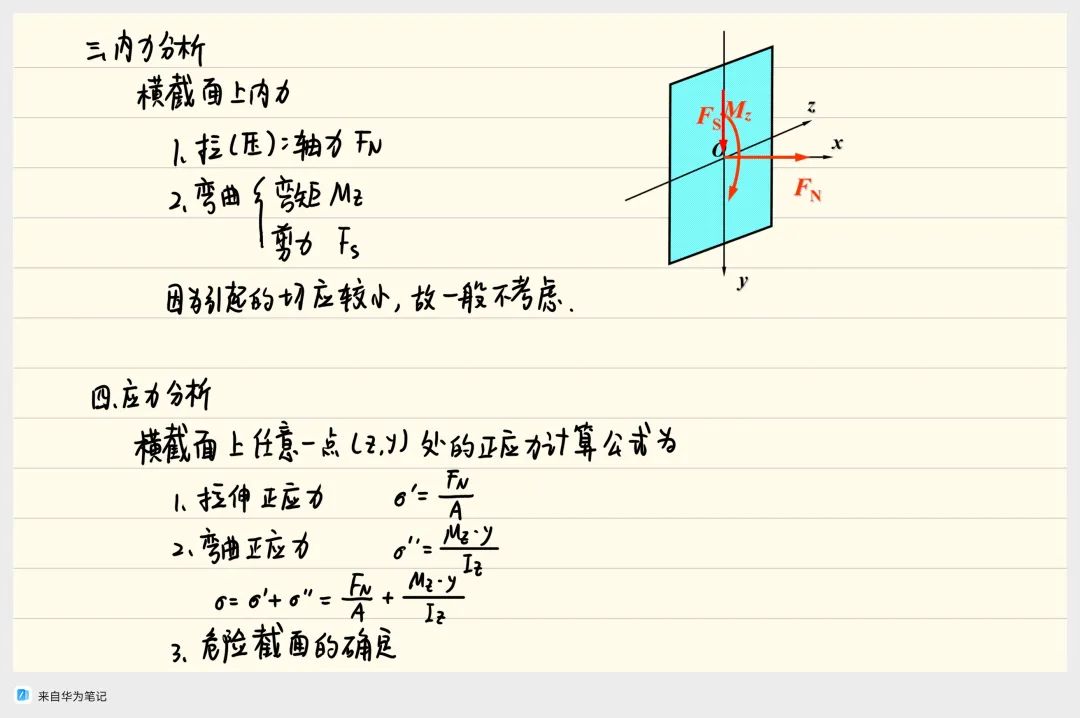 三、内力分析
横截面上内力
1、拉(压):轴力 FN
2、弯曲 { 弯矩 Mz
剪力 Fs
因为引起的切应较小,故一般不考虑.
FS Mz
z
O
x
FN
y
四、应力分析
横截面上任意一点(z,y)处的正应力计算公式为
1、拉伸正应力 σ′= FN/A
2、弯曲正应力 σ′′= Mz·y/Iz
σ= σ′+ σ″ = FN/A + Mz·y/Iz
3、危险截面的确定
来自华为笔记